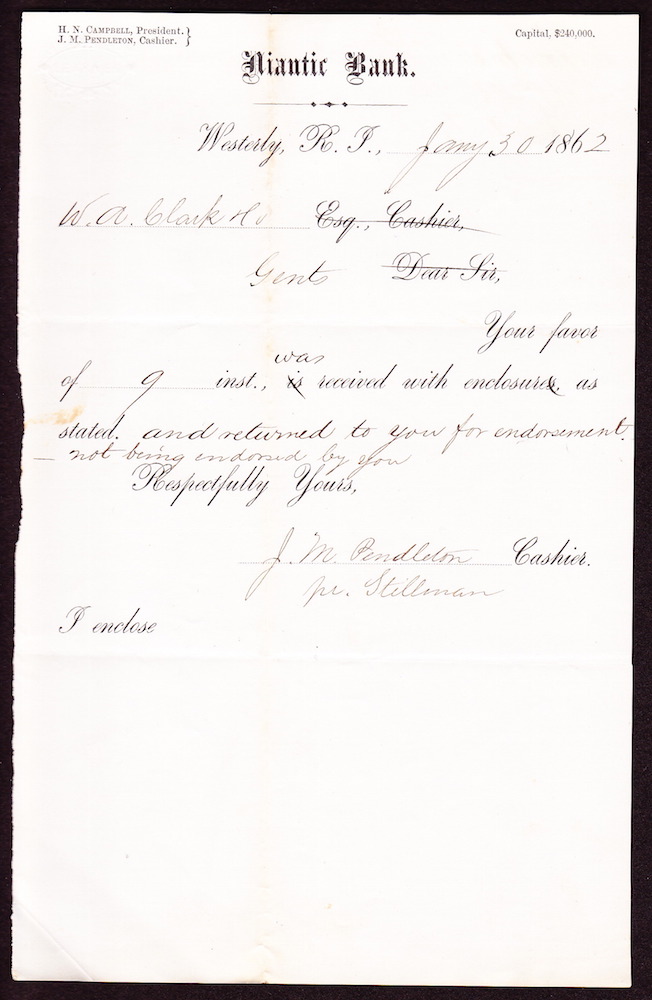 H. N. CAMPBELL, President. }
J. M. PENDLETON, Cashier. }
Capital, $240,000.
Niantic Bank.
Westerly, R. I., Jany 30 1862
W. A. Clark Esq., Cashier,
Gents Dear Sir,
Your favor
was
of 9 inst., is received with enclosures. as
stated. and returned to you for endorsement.
not being endorsed by you
Respectfully Yours,
J. M. Pendleton Cashier.
pr. Stillman
I enclose